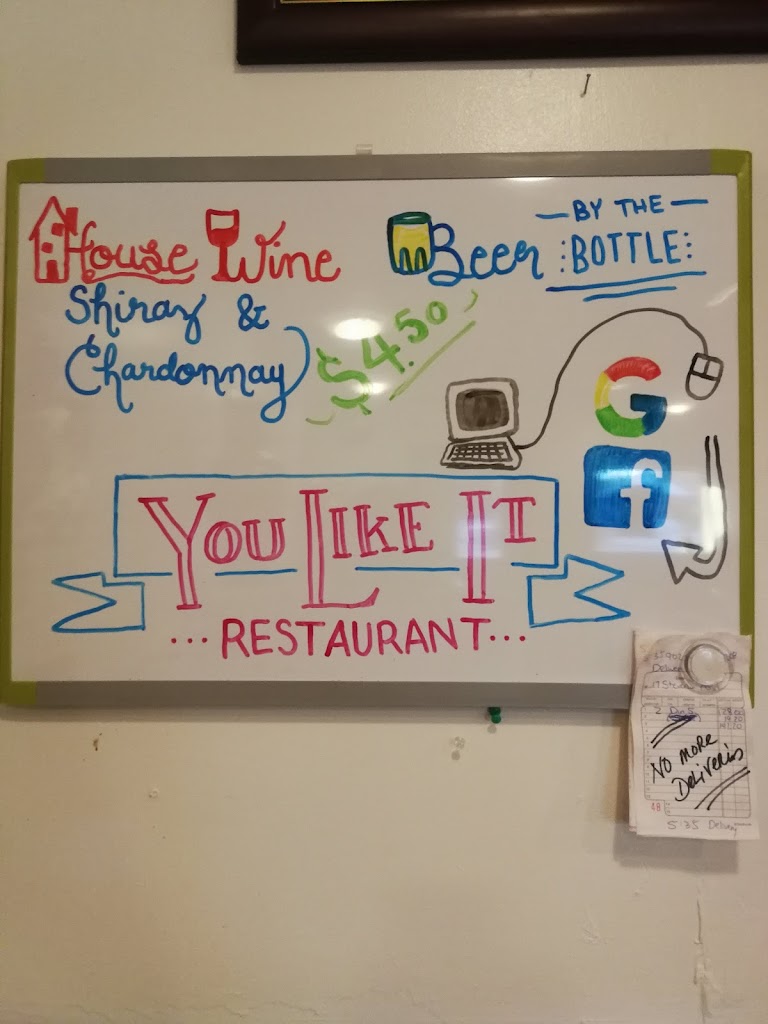 House Wine
Shiraz &
Chardonnay
$4.50
Beer
BY THE
BOTTLE
G
f
YOU LIKE IT
...RESTAURANT...
NO MORE
Deliveries
5:35 Delivery